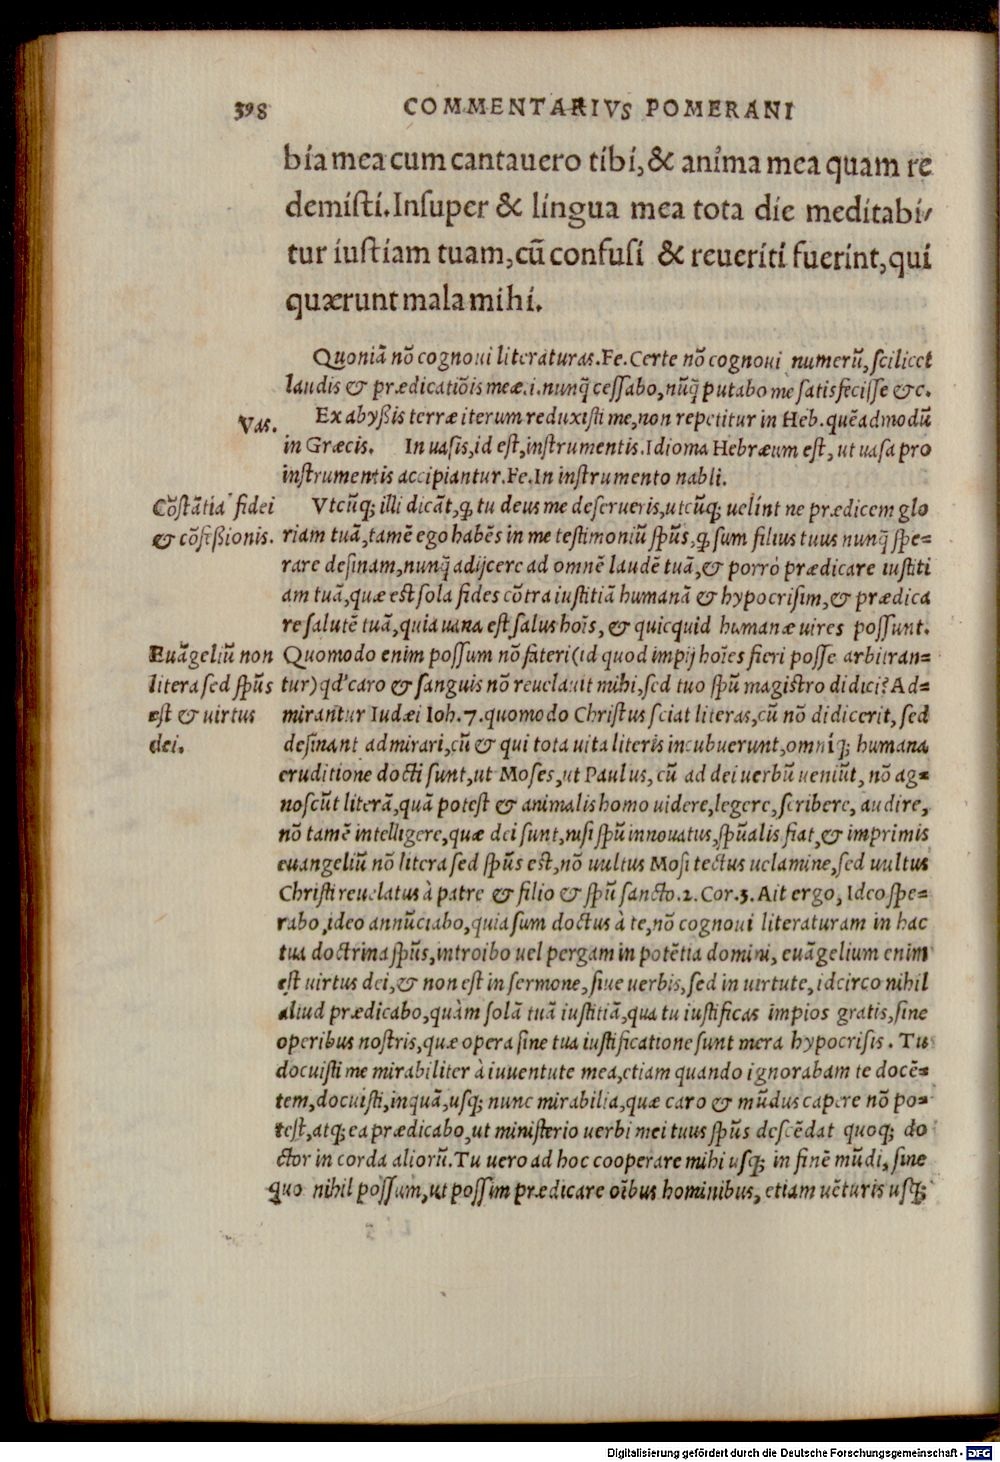 398 COMMENTARIVS POMERANI
bia mea cum cantauero tibi, & anima mea quam re
demisti. Insuper & lingua mea tota die meditabi/
tur iustiam tuam, cũ confusi & reueriti fuerint, qui
quærunt mala mihi.
Quoniã nõ cognoui literaturas. Fe. Certe nõ cognoui numerũ, scilicet
laudis & prædicatiõis meæ. i. nunq̃ cessabo, nũq̃ putabo me satisfecisse &c.
Ex abyßis terræ iterum reduxisti me, non repetitur in Heb. quẽadmodũ
Vas.
in Græcis. In uasis, id est, instrumentis. Idioma Hebræum est, ut uasa pro
instrumentis accipiantur. Fe. In instrumento nabli.
Cõstãtia fidei
& cõfeßionis.
Vtcũq; illi dicãt, ꝙ tu deus me deserueris, utcũq; uelint ne prædicem glo
riam tuã, tamẽ ego habẽs in me testimoniũ sp̃ũs, ꝙ sum filius tuus nunq̃ spe=
rare desinam, nunq̃ adijcere ad omnẽ laudẽ tuã, & porrò prædicare iustiti
am tuã, quæ est sola fides cõtra iustitiã humanã & hypocrisim, & prædica
re salutẽ tuã, quia uana est salus hoĩs, & quicquid humanæ uires possunt.
Euãgeliũ non
litera sed sp̃ũs
est & uirtus
dei.
Quomodo enim possum nõ fateri (id quod impij hoĩes fieri posse arbitran=
tur) qd' caro & sanguis nõ reuelauit mihi, sed tuo sp̃ũ magistro didici? Ad=
mirantur Iudæi Ioh. 7. quomodo Christus sciat literas, cũ nõ didicerit, sed
desinant admirari, cũ & qui tota uita literis incubuerunt, omniq; humana
eruditione docti sunt, ut Moses, ut Paulus, cũ ad dei uerbũ ueniũt, nõ ag=
noscũt literã, quã potest & animalis homo uidere, legere, scribere, audire,
nõ tamẽ intelligere, quæ dei sunt, nisi sp̃ũ innouatus, sp̃ũalis fiat, & imprimis
euangeliũ nõ litera sed sp̃ũs est, nõ uultus Mosi tectus uelamine, sed uultus
Christi reuelatus à patre & filio & sp̃ũ sancto. 2. Cor. 3. Ait ergo, Ideo spe=
rabo, ideo annũciabo, quia sum doctus à te, nõ cognoui literaturam in hac
tua doctrina sp̃ũs, introibo uel pergam in potẽtia domini, euãgelium enim
est uirtus dei, & non est in sermone, siue uerbis, sed in uirtute, idcirco nihil
aliud prædicabo, quàm solã tuã iustitiã, qua tu iustificas impios gratis, sine
operibus nostris, quæ opera sine tua iustificatione sunt mera hypocrisis. Tu
docuisti me mirabiliter à iuuentute mea, etiam quando ignorabam te docẽ=
tem, docuisti, inquã, usq; nunc mirabilia, quæ caro & mũdus capere nõ po=
test, atq; ea prædicabo, ut ministerio uerbi mei tuus sp̃ũs descẽdat quoq; do
ctor in corda aliorũ. Tu uero ad hoc cooperare mihi usq; in finẽ mũdi, sine
quo nihil possum, ut possim prædicare oĩbus hominibus, etiam uẽturis usq;
Digitalisierung gefördert durch die Deutsche Forschungsgemeinschaft - DFG